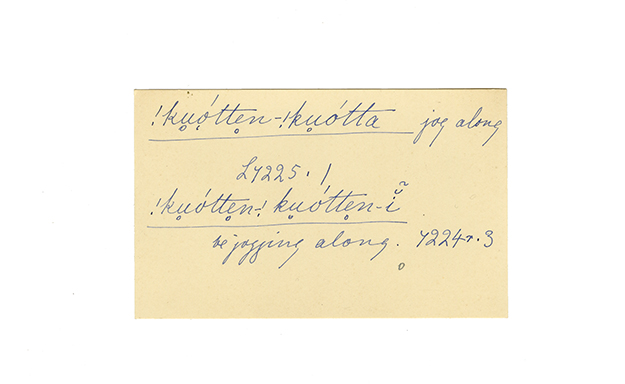 !kụọ́ttẹn-!kụótta jog along
L4225. 1
!kụóttẹn-! kụóttẹn-ĭ̃
be jogging along. 4224r. 3